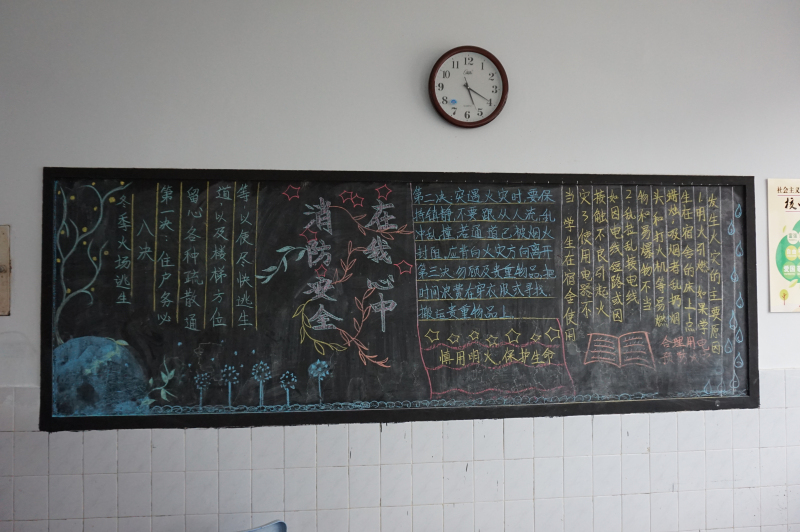 冬季火场逃生
八决
第一决:住户务必
留心各种疏散通
道以及楼梯方位
等以便尽快逃生
消防安全
在我心中
第二决:灾遇火灾时要保
持镇静不要跟从人流乱
冲乱撞,若通道已被烟火
封阻,应背向火灾方向离开
第三决:勿顾及贵重物品把
时间浪费在穿衣服或寻找、
搬运贵重物品上
慎用明火,保护生命
发生火灾的主要原因
1.用火引患:如某学
生在宿舍的床上点
蜡烛吸烟者乱扔烟
头和打火机等易燃
物和易爆物不当
2.乱拉乱接电线
如因电线短路或因
接触不良引起火
灾 3.使用电器不
当 学生在宿舍使用
合理用电
12
1
2
3
4
5
6
7
8
9
10
11
社会主义
核心